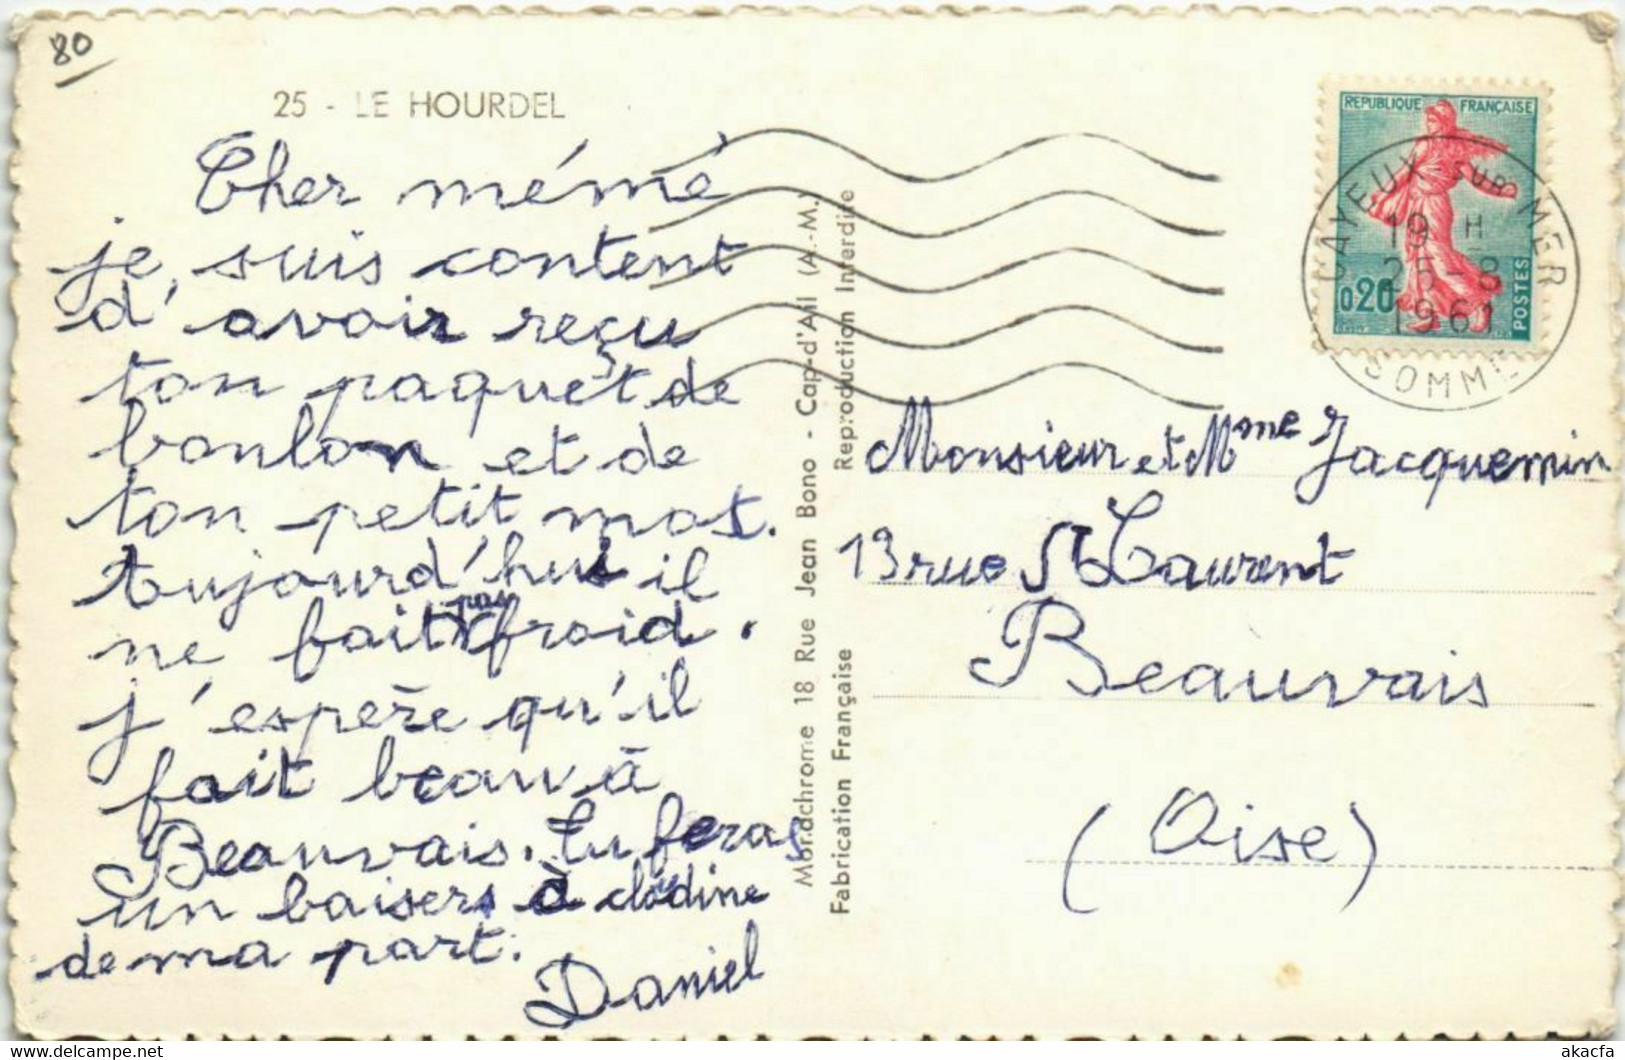 80
25 - LE HOURDEL
Cher mémé
je suis content
d'avoir reçu
ton paquet de
bonbon et de
ton petit mot.
aujourd'hui il
ne fait pas froid.
j'espère qu'il
fait beau à
Beauvais. Tu feras
un baisers à claudine
de ma part.
Daniel
Mondchrome 18 Rue Jean Bono - Cap-d'Ail (A.-M.)
Fabrication Française Reproduction Interdite
REPUBLIQUE FRANÇAISE
0,20
POSTES
CAYEUX SUR MER
19 H
25 - 8
1961
SOMME
Monsieur et Mme Jacquemin
13 rue St Laurent
Beauvais
(Oise)
akacfa